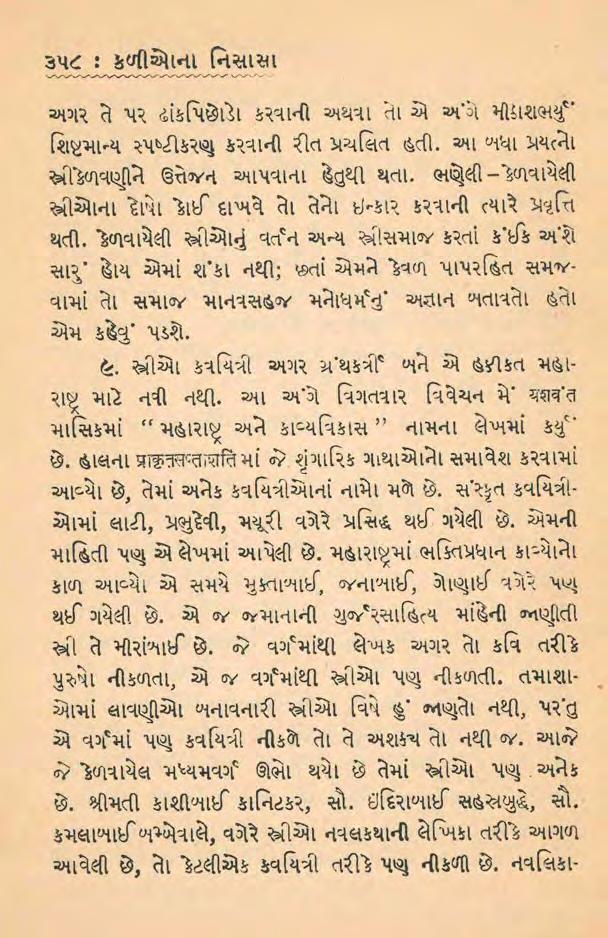 ૩૫૮ : કળીઓના નિસાસા
અગર તે પર ઢાંકપિછોડો કરવાની અથવા તો એ અંગે મીઠાશભર્યું
શિષ્ટમાન્ય સ્પષ્ટીકરણ કરવાની રીત પ્રચલિત હતી. આ બધા પ્રયત્નો
સ્ત્રીકેળવણીને ઉત્તેજન આપવાના હેતુથી થતા. ભણેલી–કેળવાયેલી
સ્ત્રીઓના દોષો કોઈ દાખવે તો તેનો ઇન્કાર કરવાની ત્યારે પ્રવૃત્તિ
થતી. કેળવાયેલી સ્ત્રીઓનું વર્તન અન્ય સ્ત્રીસમાજ કરતાં કંઈક અંશે
સારું હોય એમાં શંકા નથી; છતાં એમને કેવળ પાપરહિત સમજ-
વામાં તો સમાજ માનવસહજ મનોધર્મનું અજ્ઞાન બતાવતો હતો
એમ કહેવું પડશે.
૯. સ્ત્રીઓ કવયિત્રી અગર ગ્રંથકર્ત્રી બને એ હકીકત મહા-
રાષ્ટ્ર માટે નવી નથી. આ અંગે વિગતવાર વિવેચન મેં यशवंत
માસિકમાં “મહારાષ્ટ્ર અને કાવ્યવિકાસ” નામના લેખમાં કર્યું
છે. હાલના प्राकृतसप्तशति માં જે શૃંગારિક ગાથાઓનો સમાવેશ કરવામાં
આવ્યો છે, તેમાં અનેક કવયિત્રીઓનાં નામો મળે છે. સંસ્કૃત કવયિત્રી-
ઓમાં લાટી, પ્રભુદેવી, મયૂરી વગેરે પ્રસિદ્ધ થઈ ગયેલી છે. એમની
માહિતી પણ એ લેખમાં આપેલી છે. મહારાષ્ટ્રમાં ભક્તિપ્રધાન કાવ્યોનો
કાળ આવ્યો એ સમયે મુક્તાબાઈ, જનાબાઈ, ગોણાઈ વગેરે પણ
થઈ ગયેલી છે. એ જ જમાનાની ગુર્જરસાહિત્ય માંહેની જાણીતી
સ્ત્રી તે મીરાંબાઈ છે. જે વર્ગમાંથી લેખક અગર તો કવિ તરીકે
પુરુષો નીકળતા, એ જ વર્ગમાંથી સ્ત્રીઓ પણ નીકળતી. તમાશા-
ઓમાં લાવણીઓ બનાવનારી સ્ત્રીઓ વિષે હું જાણતો નથી, પરંતુ
એ વર્ગમાં પણ કવયિત્રી નીકળે તો તે અશક્ય તો નથી જ. આજે
જે કેળવાયેલ મધ્યમવર્ગ ઊભો થયો છે તેમાં સ્ત્રીઓ પણ અનેક
છે. શ્રીમતી કાશીબાઈ કાનિટકર, સૌ. ઇંદિરાબાઈ સહસ્રબુદ્ધે, સૌ.
કમલાબાઈ બમ્બેવાલે, વગેરે સ્ત્રીઓ નવલકથાની લેખિકા તરીકે આગળ
આવેલી છે, તો કેટલીએક કવયિત્રી તરીકે પણ નીકળી છે. નવલિકા-